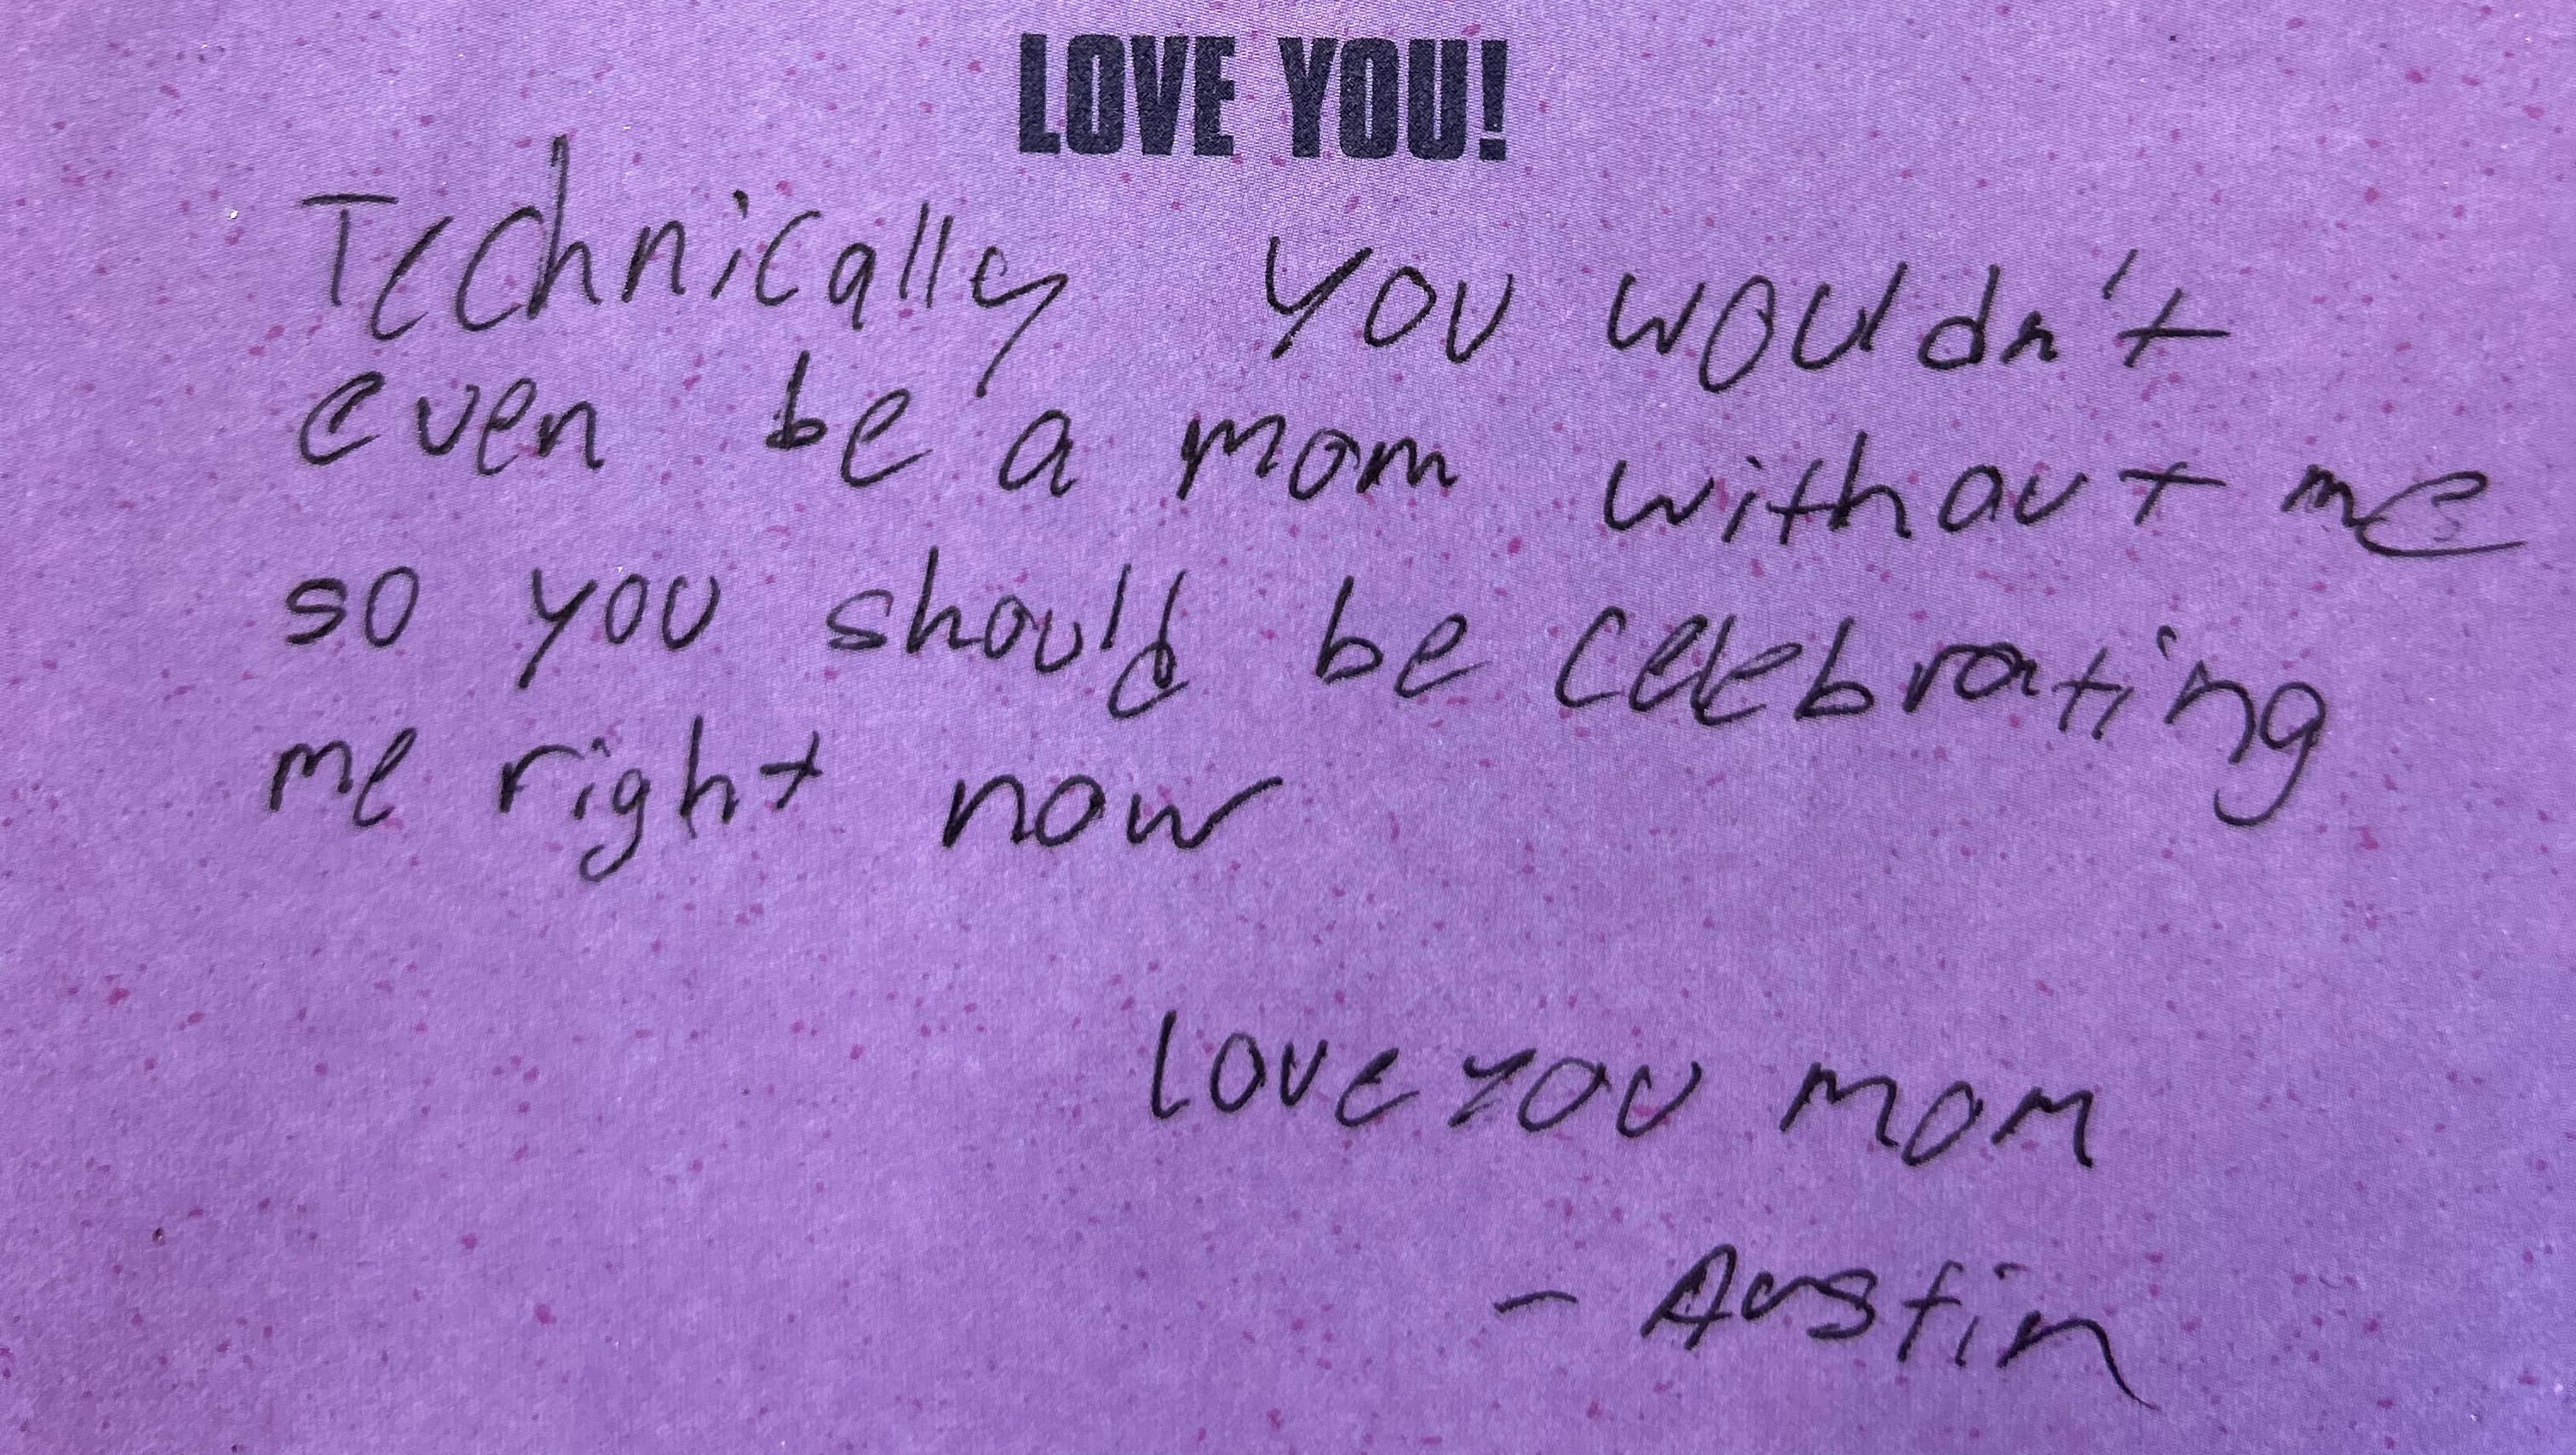 LOVE YOU!
Technically you wouldn't
even be a mom without me
so you should be celebrating
me right now
love you mom
- Austin